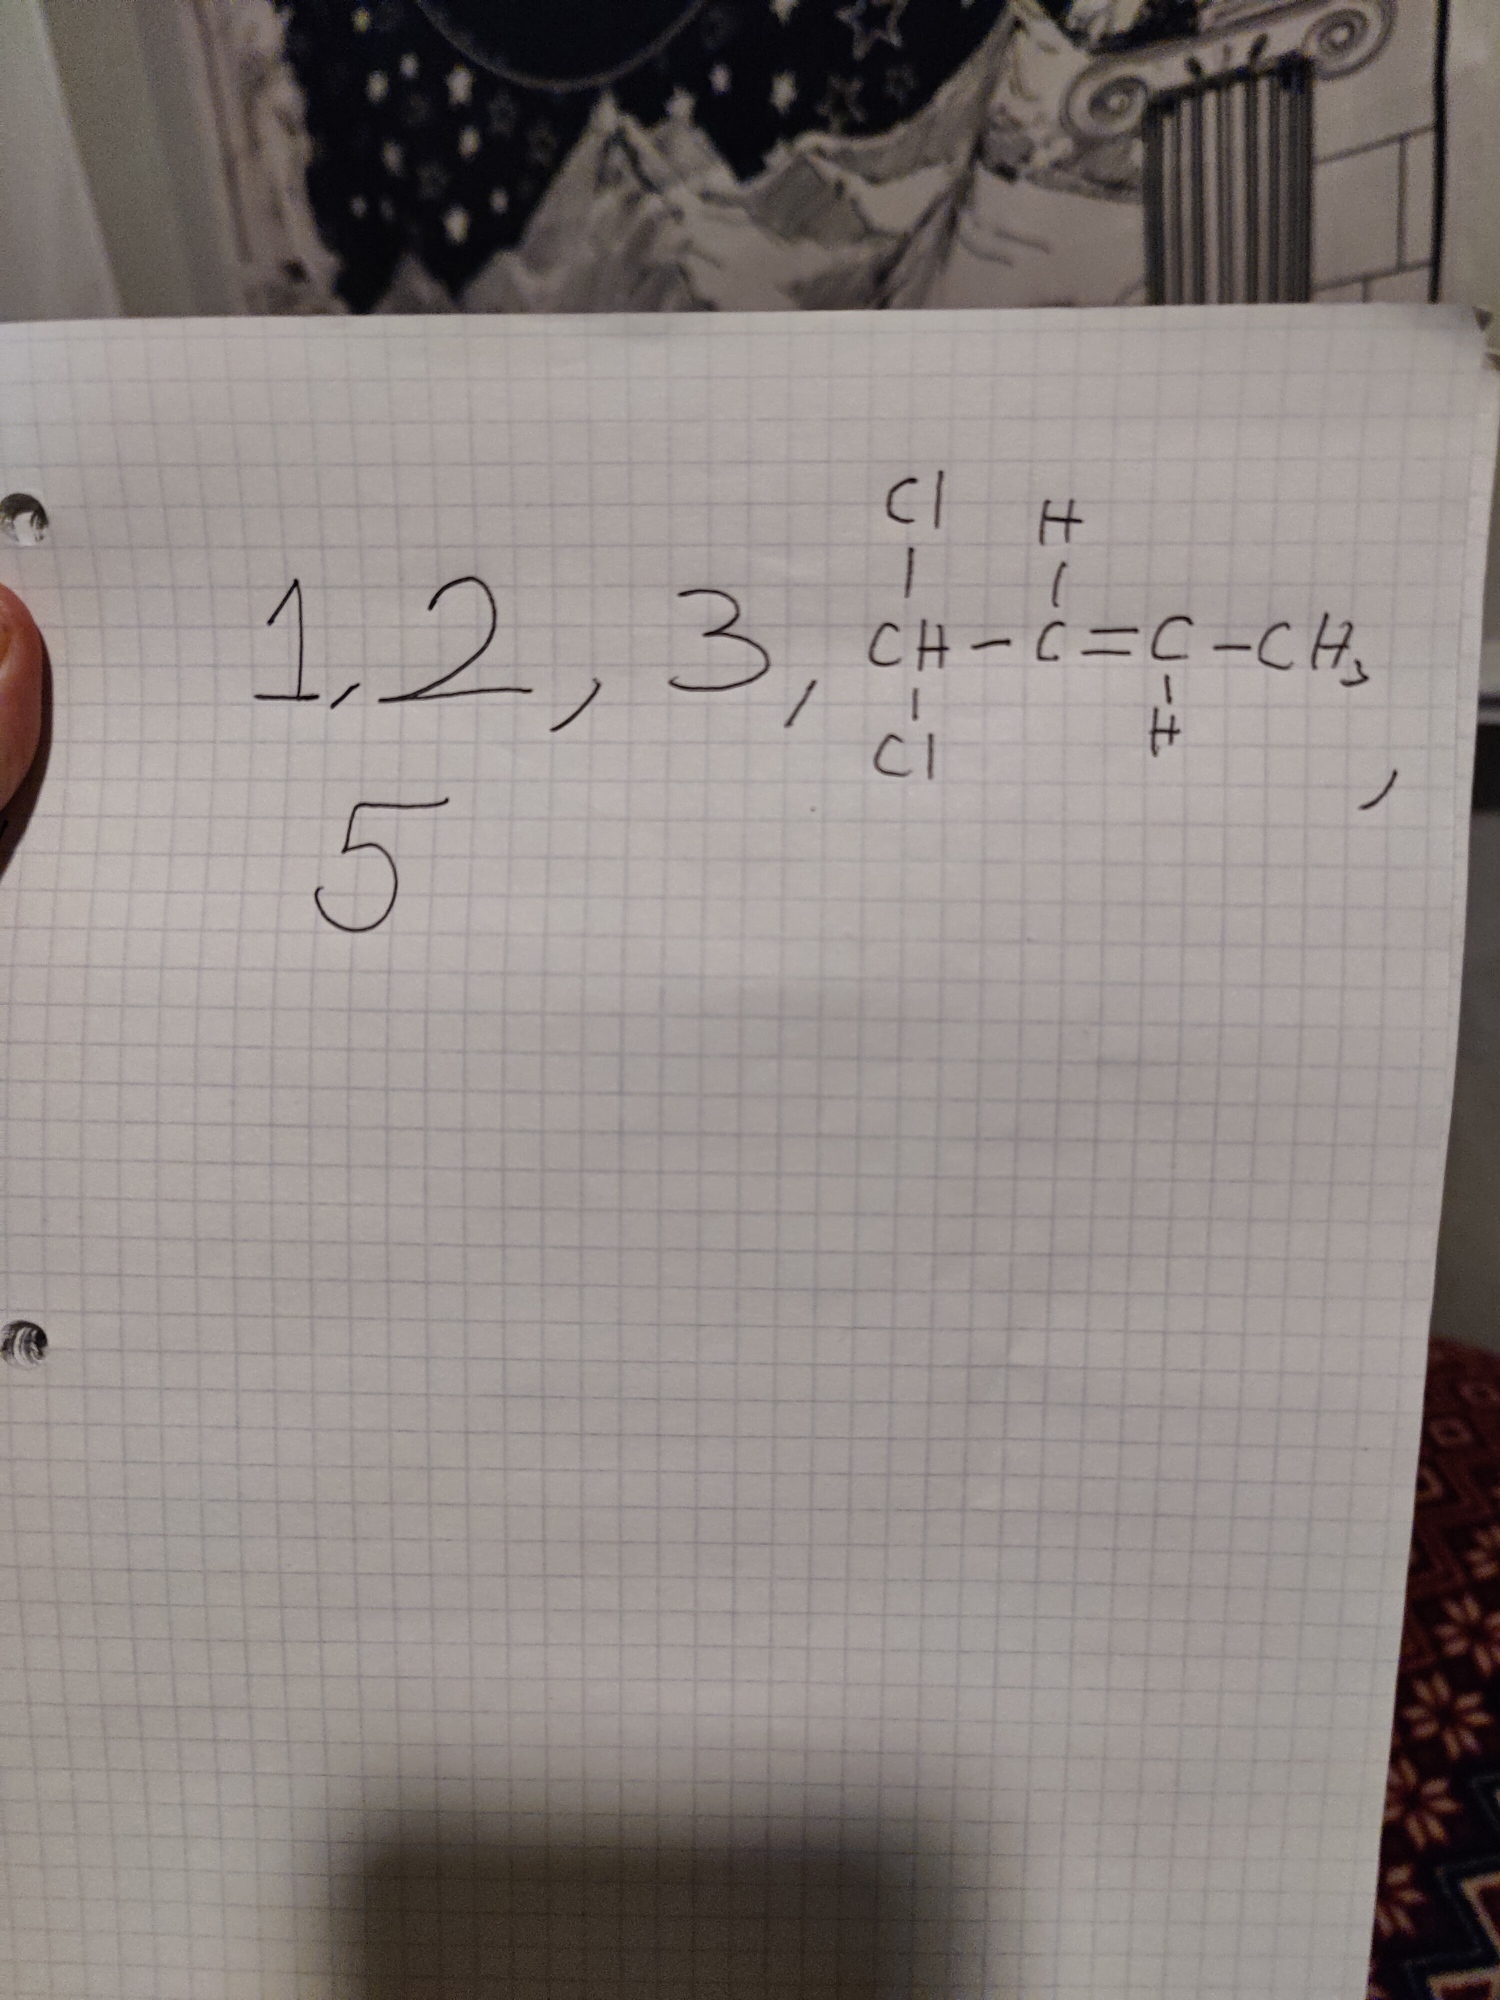 Cl H
1, 2, 3, CH - C = C - CH₃,
Cl H
5